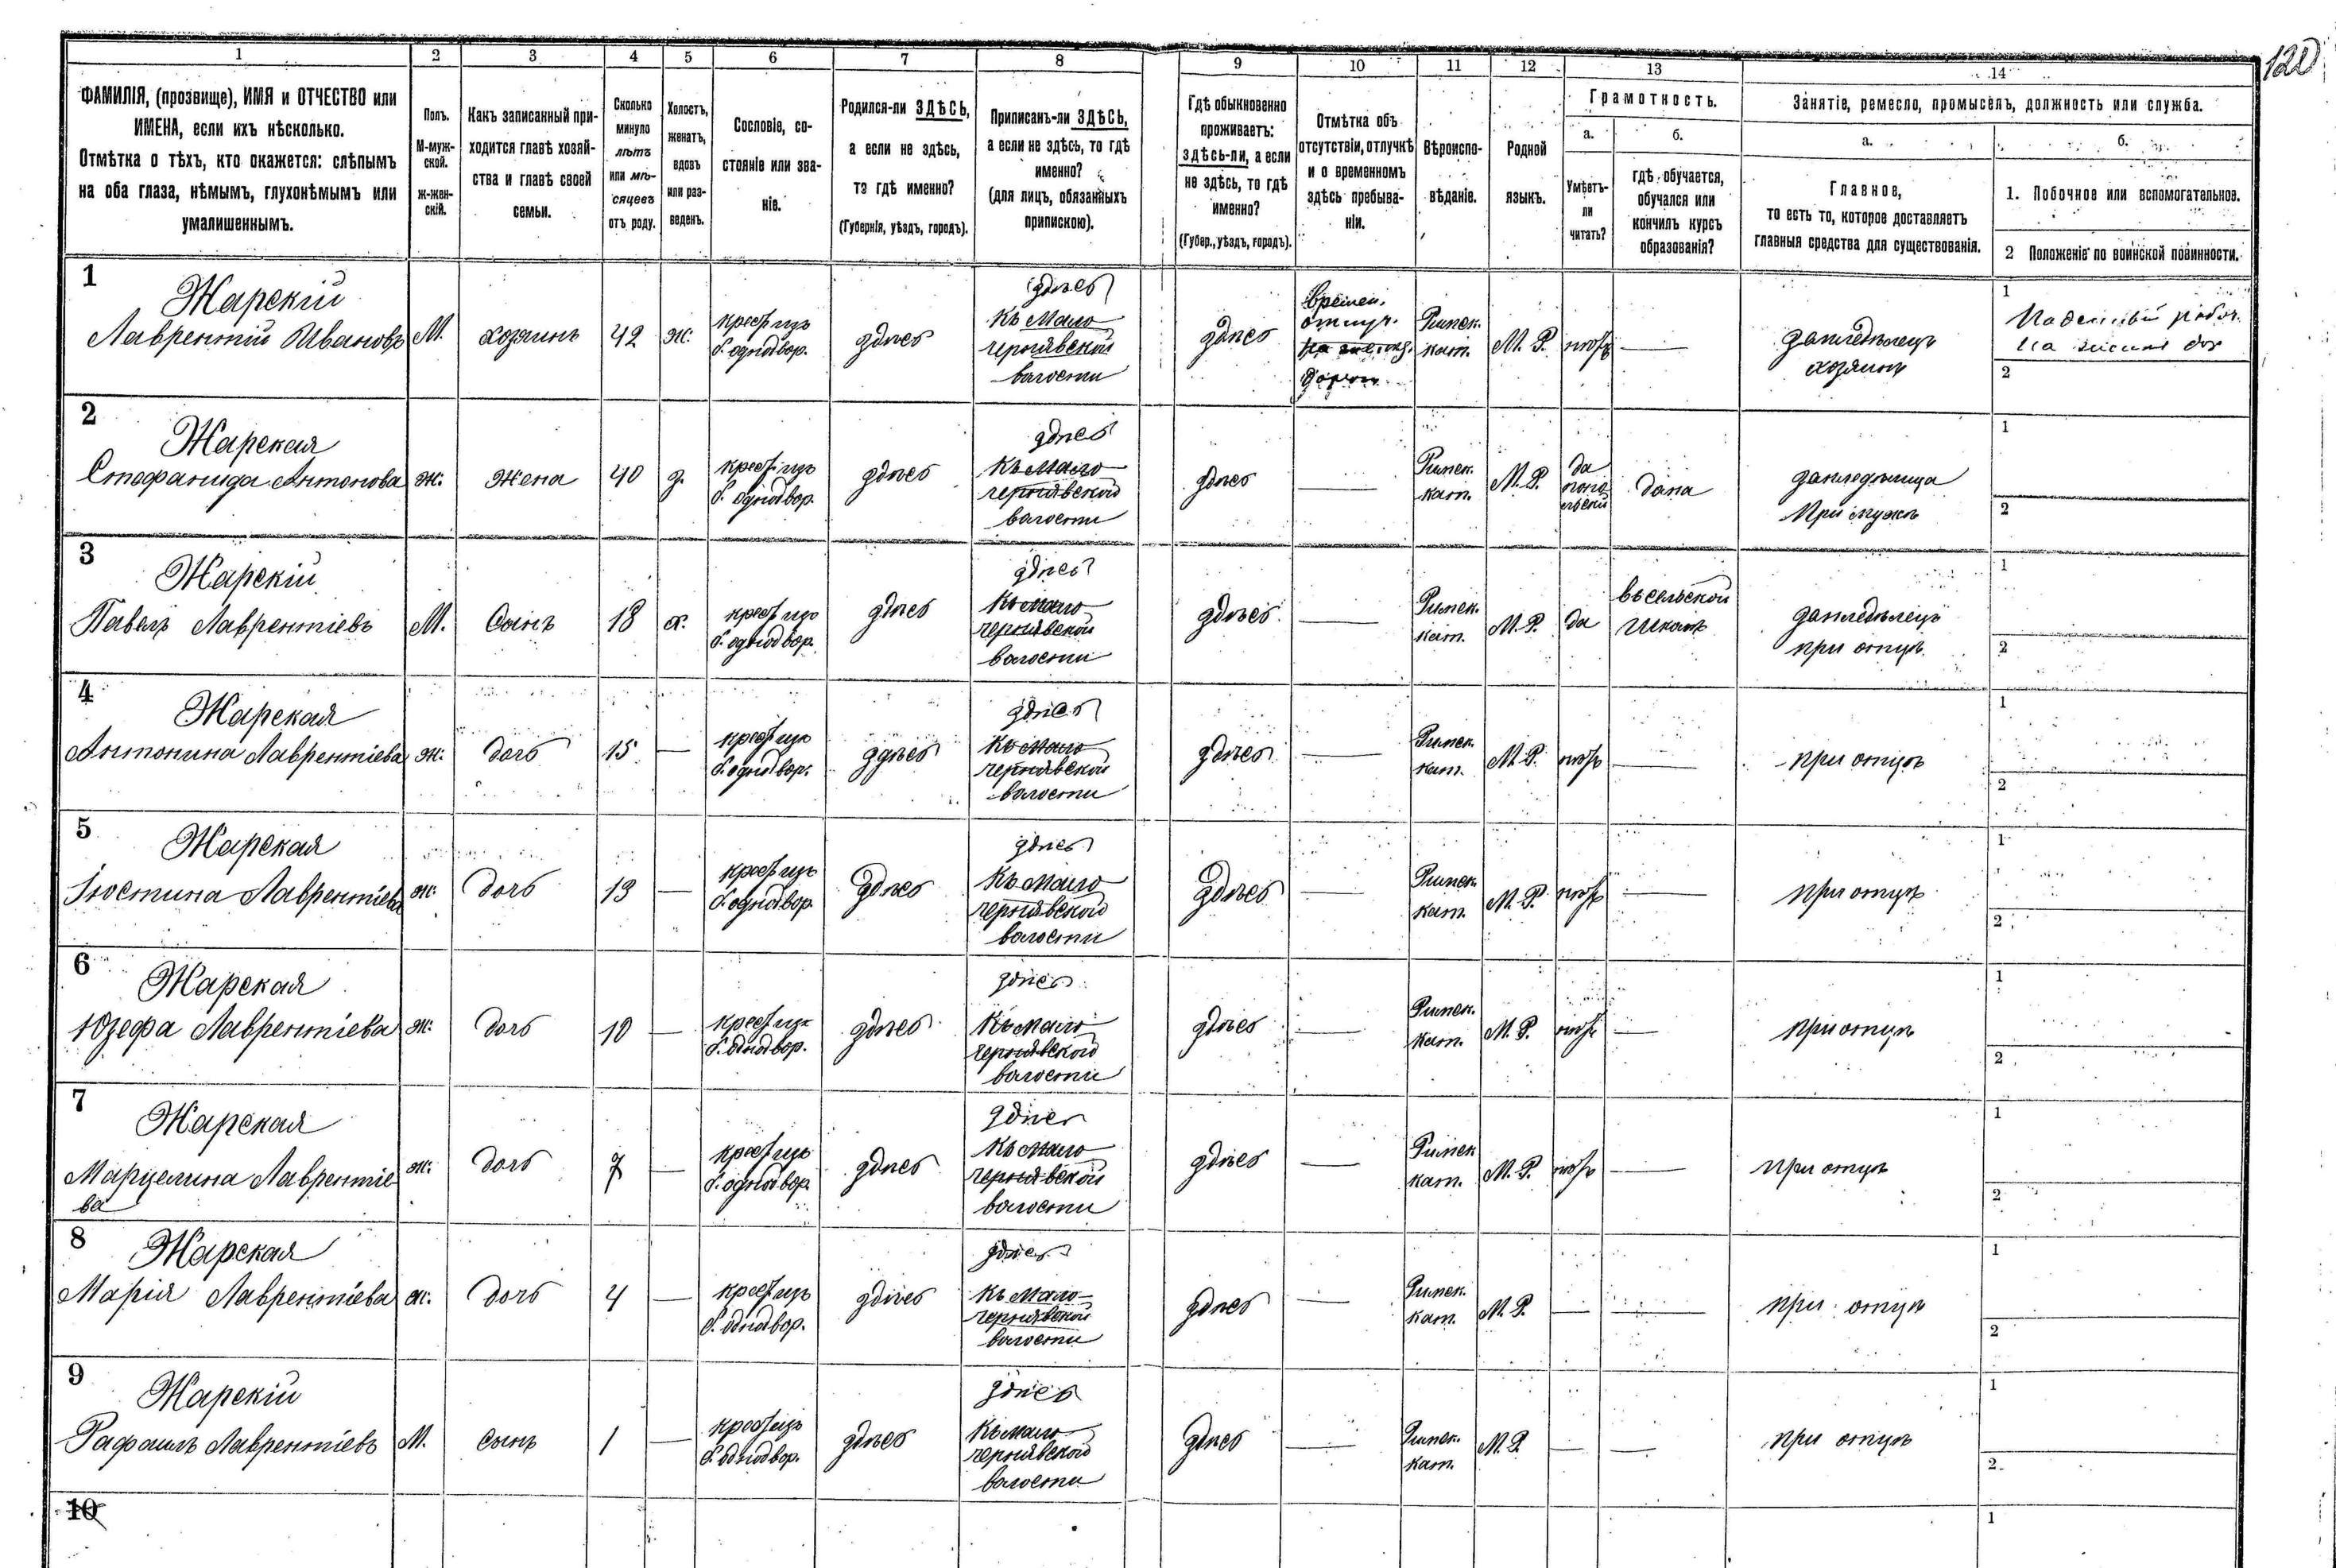 120
1 2 3 4 5 6 7 8 9 10 11 12 13 14
ФАМИЛІЯ, (прозвище), ИМЯ и ОТЧЕСТВО или
ИМЕНА, если ихъ нѣсколько.
Отмѣтка о тѣхъ, кто окажется: слѣпымъ
на оба глаза, нѣмымъ, глухонѣмымъ или
умалишеннымъ.
Полъ.
М-муж-
ской.
Ж-жен-
скій.
Какъ записанный при-
ходится главѣ хозяй-
ства и главѣ своей
семьи.
Сколько
минуло
лѣтъ
или мѣ-
сяцевъ
отъ роду.
Холостъ,
женатъ,
вдовъ
или раз-
веденъ.
Сословіе, со-
стояніе или зва-
ніе.
Родился-ли ЗДѢСЬ,
а если не здѣсь,
то гдѣ именно?
(Губернія, уѣздъ, городъ).
Приписанъ-ли ЗДѢСЬ,
а если не здѣсь, то гдѣ
именно?
(для лицъ, обязанныхъ
припискою).
Гдѣ обыкновенно
проживаетъ:
здѣсь-ли, а если
не здѣсь, то гдѣ
именно?
(Губер., уѣздъ, городъ).
Отмѣтка объ
отсутствіи, отлучкѣ
и о временномъ
здѣсь пребыва-
ніи.
Вѣроиспо-
вѣданіе.
Родной
языкъ.
Грамотность.
а.
Умѣетъ-
ли
читать?
б.
гдѣ обучается,
обучался или
кончилъ курсъ
образованія?
Занятіе, ремесло, промыселъ, должность или служба.
а.
Главное,
то есть то, которое доставляетъ
главныя средства для существованія.
б.
1. Побочное или вспомогательное.
2 Положеніе по воинской повинности.
1
Жарскій
Лаврентій Ивановъ
М.
хозяинъ
42
ж.
крест. изъ
б. однодвор.
здѣсь
здѣсь
Къ Мало
чернявской
волости
здѣсь
Времен.
отлуч.
Римск.
кат.
М. Р.
нѣтъ
—
земледѣлецъ
хозяинъ
1
2
2
Жарская
Стефанида Антонова
ж.
жена
40
з.
крест. изъ
б. однодвор.
здѣсь
здѣсь
Къ Мало
чернявской
волости
здѣсь
—
Римск.
кат.
М. Р.
да
дома
земледѣлица
При мужѣ
1
2
3
Жарскій
Павелъ Лаврентіевъ
М.
Сынъ
18
х.
крест. изъ
б. однодвор.
здѣсь
здѣсь
Къ Мало
чернявской
волости
здѣсь
—
Римск.
кат.
М. Р.
да
въ сельской
школѣ
земледѣлецъ
при отцѣ
1
2
4
Жарская
Антонина Лаврентіева
ж.
дочь
15
—
крест. изъ
б. однодвор.
здѣсь
здѣсь
Къ Мало
чернявской
волости
здѣсь
—
Римск.
кат.
М. Р.
нѣтъ
—
при отцѣ
1
2
5
Жарская
Іюстина Лаврентіева
ж.
дочь
13
—
крест. изъ
б. однодвор.
здѣсь
здѣсь
Къ Мало
чернявской
волости
здѣсь
—
Римск.
кат.
М. Р.
нѣтъ
—
при отцѣ
1
2
6
Жарская
Юзефа Лаврентіева
ж.
дочь
10
—
крест. изъ
б. однодвор.
здѣсь
здѣсь
Къ Мало
чернявской
волости
здѣсь
—
Римск.
кат.
М. Р.
нѣтъ
—
при отцѣ
1
2
7
Жарская
Марцелина Лаврентіе
ва
ж.
дочь
7
—
крест. изъ
б. однодвор.
здѣсь
здѣсь
Къ Мало
чернявской
волости
здѣсь
—
Римск.
кат.
М. Р.
нѣтъ
—
при отцѣ
1
2
8
Жарская
Марія Лаврентіева
ж.
дочь
4
—
крест. изъ
б. однодвор.
здѣсь
здѣсь
Къ Мало
чернявской
волости
здѣсь
—
Римск.
кат.
М. Р.
—
—
при отцѣ
1
2
9
Жарскій
Рафаилъ Лаврентіевъ
М.
сынъ
1
—
крест. изъ
б. однодвор.
здѣсь
здѣсь
Къ Мало
чернявской
волости
здѣсь
—
Римск.
кат.
М. Р.
—
—
при отцѣ
1
2
10
1